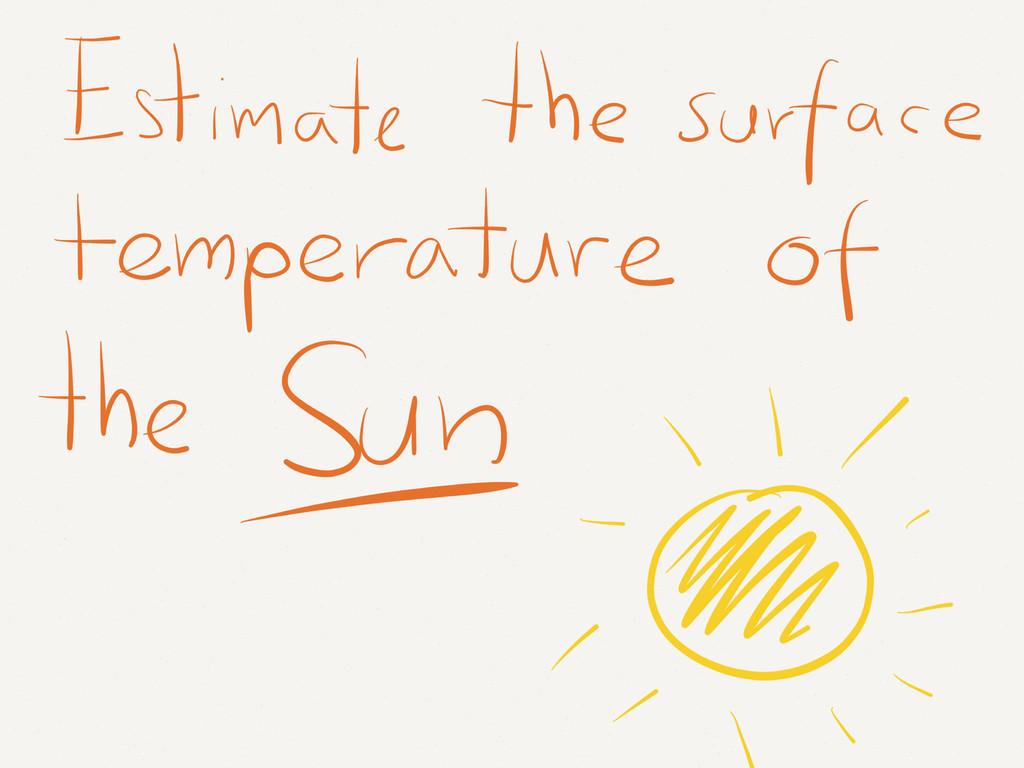 Estimate the surface
temperature of
the Sun